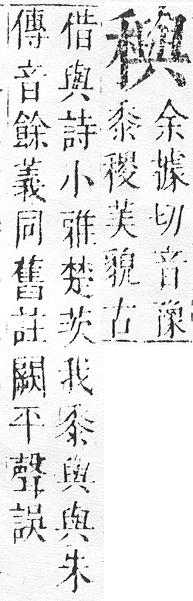 𥠖
余據切音豫
黍稷美貌古
借與詩小雅楚茨我黍與與朱
傳音餘義同舊註闕平聲誤